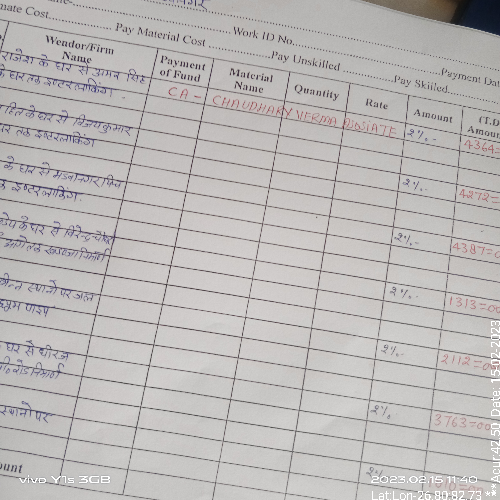 Work ID No.
mate Cost
Pay Material Cost
Pay Unskilled
Pay Skiiled
Payment Dat
Wendor/Firm Name
Payment of Fund
Material Name
Quantity
Rate
Amount
(T.D
Amou
राजेश के घर से अमन सिंह
के घर तक इण्टरलाकिंग
CA - CHAUDHARY VERMA
2%.-
4364=
हित के घर से विजय कुमार
घर तक इण्टरलाकिंग
2%.-
4272=
के घर से
इण्टरलाकिंग
2%.-
4387=0
के घर से विरेन्द्र
आगे तक खडण्जा निर्माण
2%.-
1313=00
स्थानो पर जल
ह्यूम पाइप
2%.-
2112=0
घर से धीरज
रोड निर्माण
2%.
3763=00
स्थानो पर
ount
vivo Y1s 3GB
2023.02.15 11:40
Lat Lon-26.80,82.73
***Acur:42.50 Date: 15-02-2023